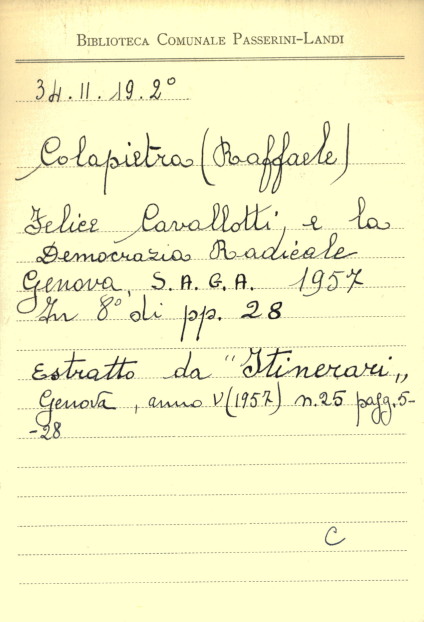 BIBLIOTECA COMUNALE PASSERINI-LANDI
34.II.19.2°
Colapietra (Raffaele)
Felice Cavallotti, e la
Democrazia Radicale
Genova, S.A.G.A. 1957
In 8° di pp. 28
Estratto da "Itinerari„
Genova, anno V (1957) n.25 pagg.5-
-28
C